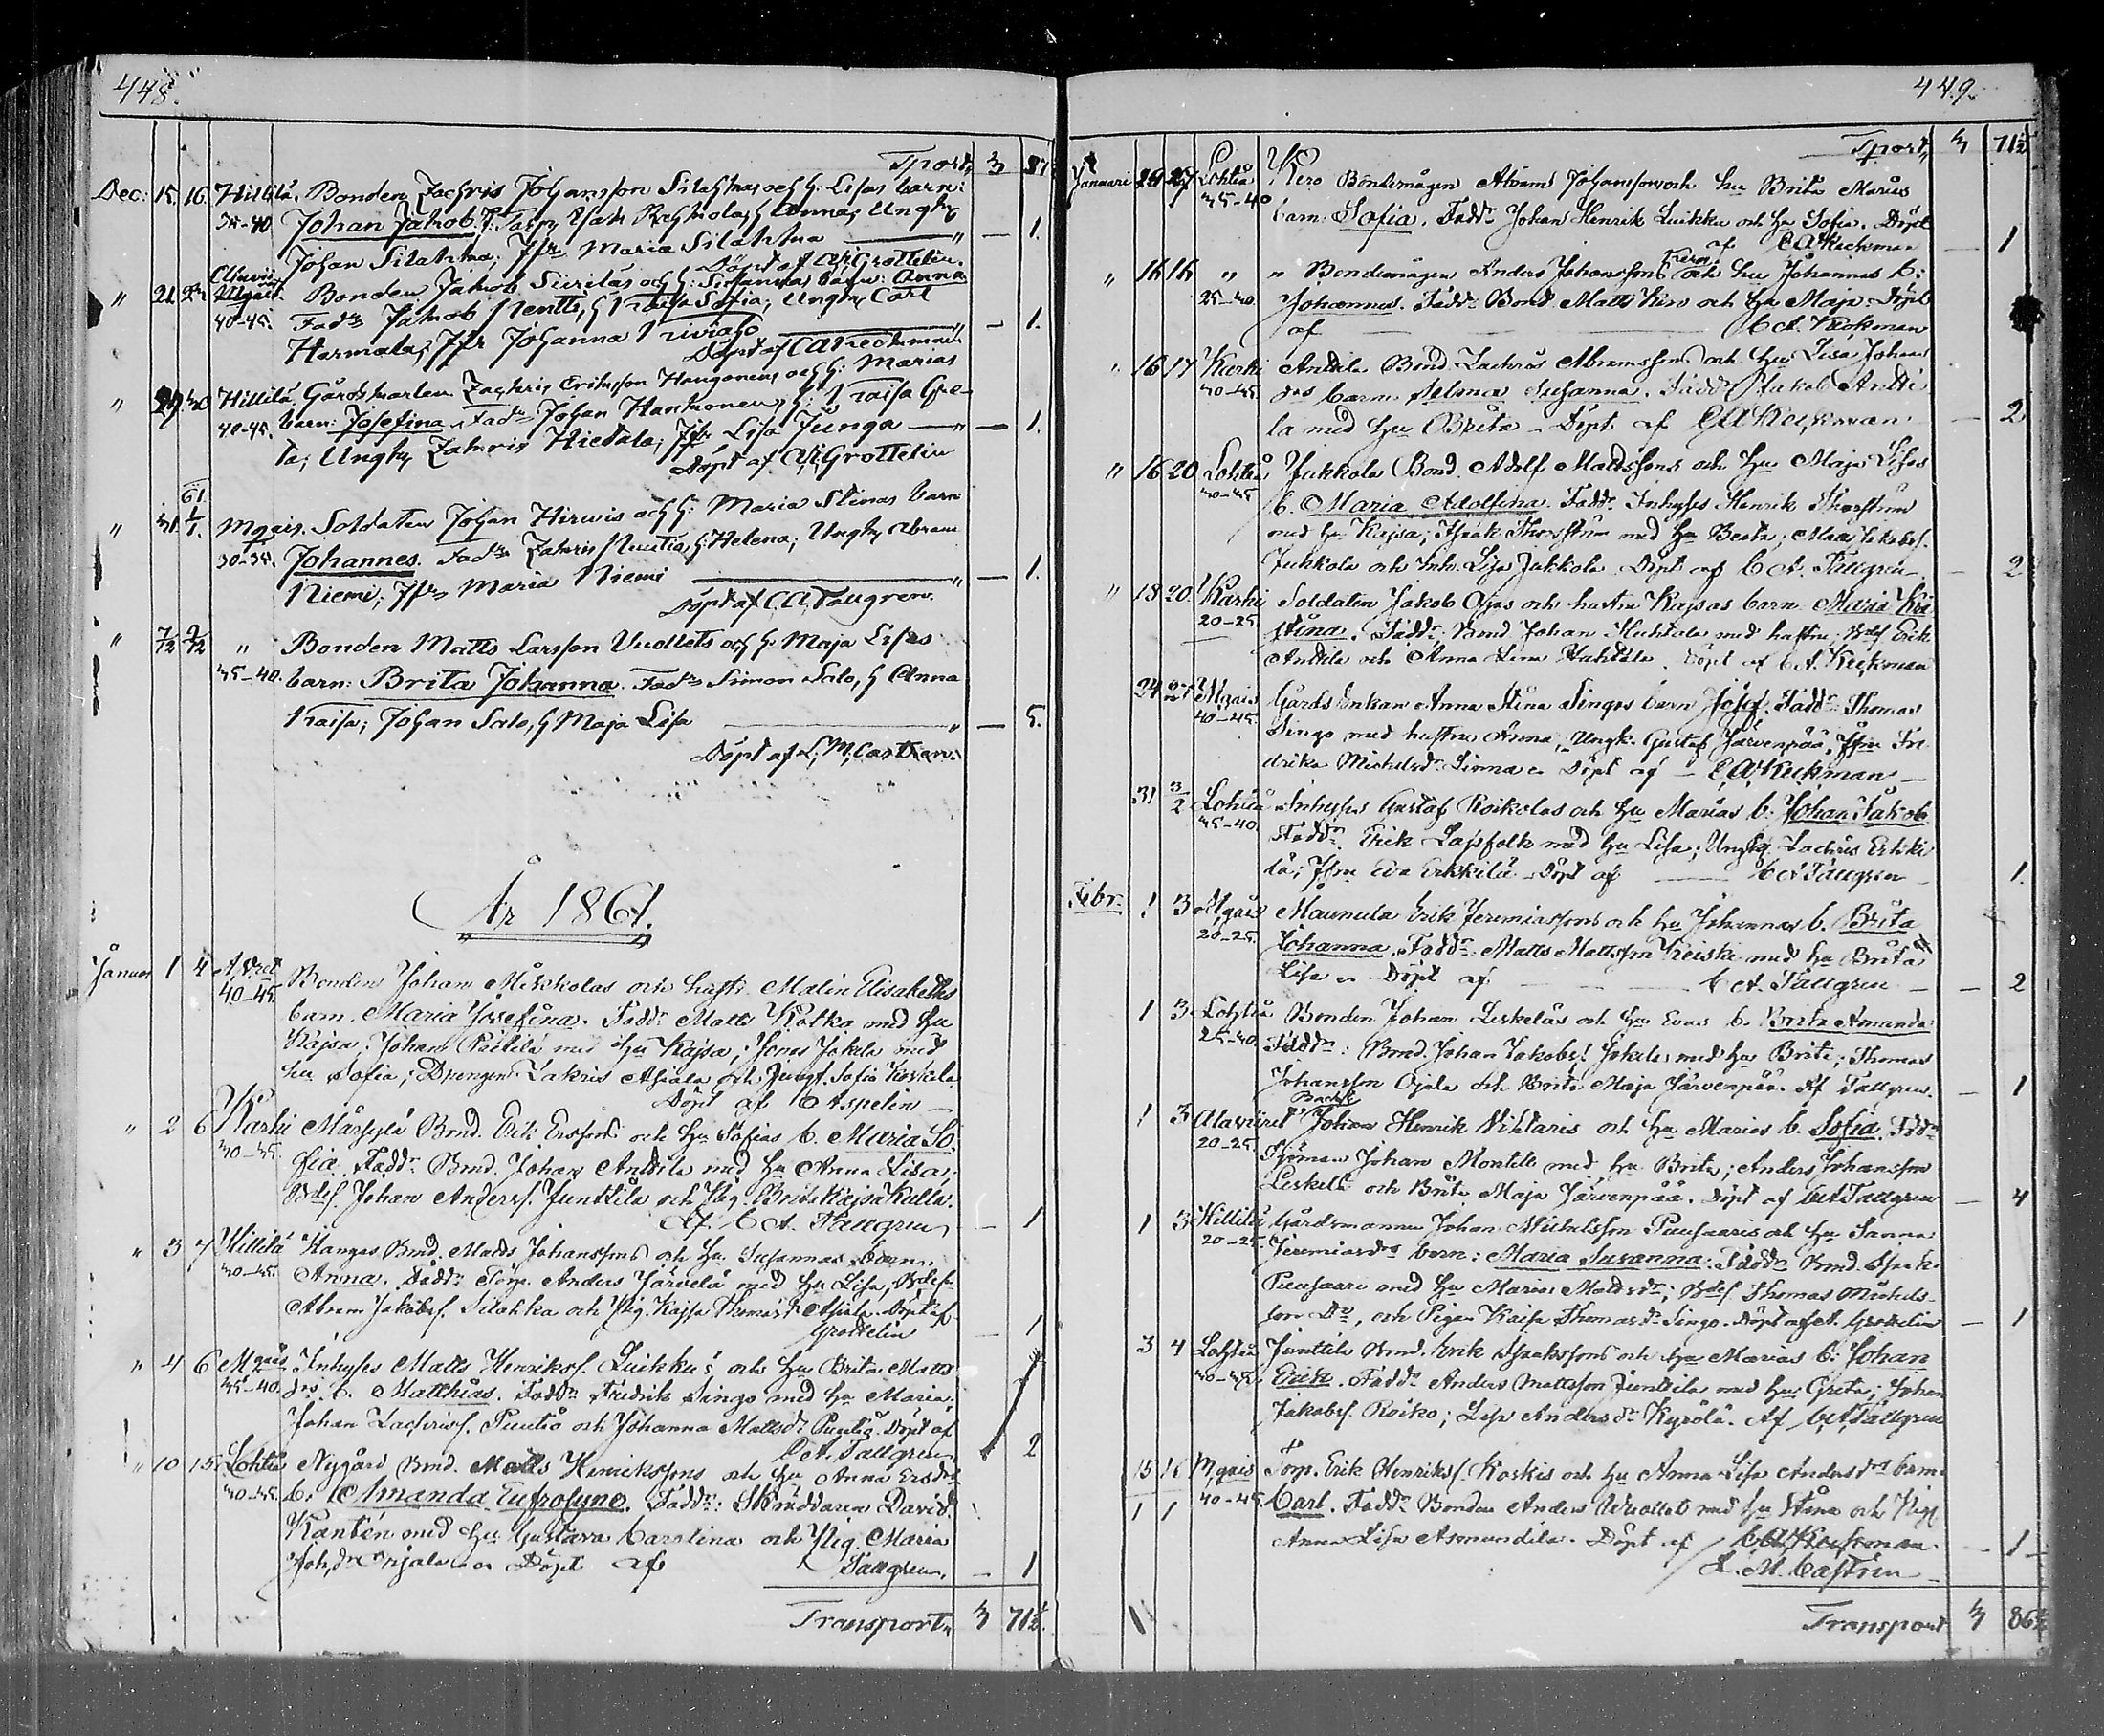 448.
Tport, 3 87
Dec: 15. 16. Hillilä. Bonden Zachris Johansson Silahkas och h: Lisas barn:
35-40 Johan Jakob. Isak h Anna, Ungk
Johan Silahka; Jfr Maria Silahka — 1.
Döpt af C.A. Grottelin.
" 21 Bonden Jakob Siirilas och h: Susannas barn: Anna
40-45. Fadd: Jakob h Kaisa Sofia, Ungk Carl
Harmala; Jfr Johanna — 1.
Döpt af C A Keckman
" 29 30 Hillilä Zachris Eriksson och h: Marias
40-45. barn: Josefina. Fadd: Johan h: Kaisa Gre-
ta; Ungk Zakris Hietala; Jfr Lisa Junga — 1.
Döpt af C.A. Grottelin
61
" 31. 1/1. Mgais. Soldaten Johan Hirwis och h: Maria Stinas barn
30-35. Johannes. Fadd: Zakris h: Helena; Ungk Abram
Niemi; Jfr Maria Niemi — 1.
Döpt af C.A. Tallgren.
" 7/12 9/12 " Bonden Matts Larsson Vuollets och h: Maja Lisas
35-40. barn: Brita Johanna. Fadd: Simon Salo, h Anna
Kaisa; Johan Salo, h Maja Lisa — 5.
Döpt af L. M. Castren.
År 1861.
Januar 1 4 Bonden Johan och hustr. Malin Elisabeths
40-45. barn. Maria Josefina. Fadd: Matts Kotka med hu
Kajsa; Johan med hu Kajsa; Jonas Jokela med
hu Sofia; Drengen Zakris Asiala och Jungf. Sofia Koskela
Döpt af C Aspelin
" 2 6 Karhi Bond. Erik Erssons och hu Sofias b. Maria So-
30-35. fia. Fadd: Bond. Johan Anttila med hu Anna Lisa,
Johan Anderss. Junttila och Pig. Brita Kajsa Kulla.
Af C A. Tallgren — 1
" 3 7 Hillilä Hangas Bond. Matts Johanssons och hu Susannas barn.
40-45. Anna. Fadd: Anders Järvelä med hu Lisa,
Abram Jakobss. Silahka och Pig. Kajsa Asiala. Döpt af
Grottelin — 1
" 4 6 Mgais Inhyses Matts Henrikss. Luikku's och hu Brita Matts
35-40. drs b. Matthias. Fadd: Fredrik Singo med hu Maria;
Johan Zachriss. Puutio och Johanna Mattsd: Puutio. Döpt af
C A. Tallgren 2
" 10 15. Lohteå Nygård Bond. Matts Henrikssons och hu Anna Ersdrs
40-45. b. Amanda Eufrosyne. Fadd: Skräddaren David
Kantén med hu Gustava Carolina och Pig. Maria
Joh.dr Ojala. Döpt af Tallgren. — 1
Transport, 3 71½.
449.
Tport, 3 71½
Januari 24 27 Lohteå Kero Bondemågen Abram Johanssons och hu Brita Marias
35-40 barn: Sofia. Fadd: Johan Henrik Luikku och hu Sofia. Döpt
af C A Keckman — 1
" 16 16 " " Bondemågen Anders Johanssons Kero och hu Johannas b:
25-30 Johannes. Fadd: Bond. Matts Kero och hu Maja. Döpt
af C A. Keckman
" 16 17 Karhi Anttila Bond. Zachris Abramssons och hu Lisa Johans
40-45. drs barn. Selma Susanna. Fadd: Jakob Antti-
la med hu Brita. Döpt af C A Keckman — 2
" 16 20 Lohteå Jukkola Bond. Adolf Mattssons och hu Maja Lisas
40-45 b. Maria Adolfina. Fadd: Inhyses Henrik
med hu Kajsa; Isaak med hu Beata; Jakobs.
Jukkola och Inh. Lisa Jukkola. Döpt af C A. Tallgren — 2
" 18 20 Karhi Soldaten Jakob Ojas och hustru Kajsas barn Maria Kri
20-25. stina. Fadd: Bond Johan Huhtala med hustru; Erik
Anttila och Anna Lena Huhtala. Döpt af C A. Keckman
24 27 Mgais Gårds Enkan Anna Stina Singos barn Josef. Fadd: Thomas
40-45. Singo med hustru Anna; Ungk. Gustaf Järvenpää, Jfru Fre
drika Michelsdr Linna. Döpt af C A Keckman
31 3/2 Lohteå Inhyses Gustaf Roikolas och hu Marias b: Johan Jakob
35-40. Fadd: Erik Lapsfolk med hu Lisa; Ungkg. Zachris Erkki
lä; Jfru Eva Erkkilä. Döpt af C A Tallgren 1.
Febr. 1 3 Mgais Maunula Erik Jeremiassons och hu Johannas b. Brita
20-25. Johanna. Fadd: Matts Mattsson Keiski med hu Brita
Lisa. Döpt af C A. Tallgren — 2
1 3 Lohteå Bonden Johan Leskeläs och hu Evas b. Brita Amanda
25-30 Fadd: Bond. Johan Jakobs. Jokela med hu Brita; Thomas
Johansson Ojala och Brita Maja Järvenpää. Af Tallgren. — 1
1 3 Alaviiret Johan Henrik Vihtaris och hu Marias b. Sofia. Fadd:
20-25. Johan Montell med hu Brita; Anders Johansson
Leskelä och Brita Maja Järvenpää. Döpt af C A Tallgren — 4
1 3 Hillilä Gårdsmannen Johan Michelsson Puusaaris och hu Sanna
20-25. Jeremiasdrs barn: Maria Susanna. Fadd: Bond. Isak
Puusaari med hu Maria Mattsdr; Thomas Michels-
son Do, och Pigan Kaisa Thomasdr Singo. Döpt af A. Grottelin — 1
3 4 Lohteå Junttila Bond. Erik Isakssons och hu Marias b: Johan
40-45. Erik. Fadd: Anders Mattsson Junttila med hu Greta; Johan
Jakobs. Roiko; Lisa Andersdr Kyrölä. Af C A Tallgren
15 16 Mgais Torp. Erik Henrikss. Koskis och hu Anna Lisa Andersdrs barn
40-45. Carl. Fadd: Bonden Anders Vuollet med hu Stina och Pig.
Anna Lisa Asmundila. Döpt af C A Keckman. — 1
L. M. Castrén
Transport 3 86½